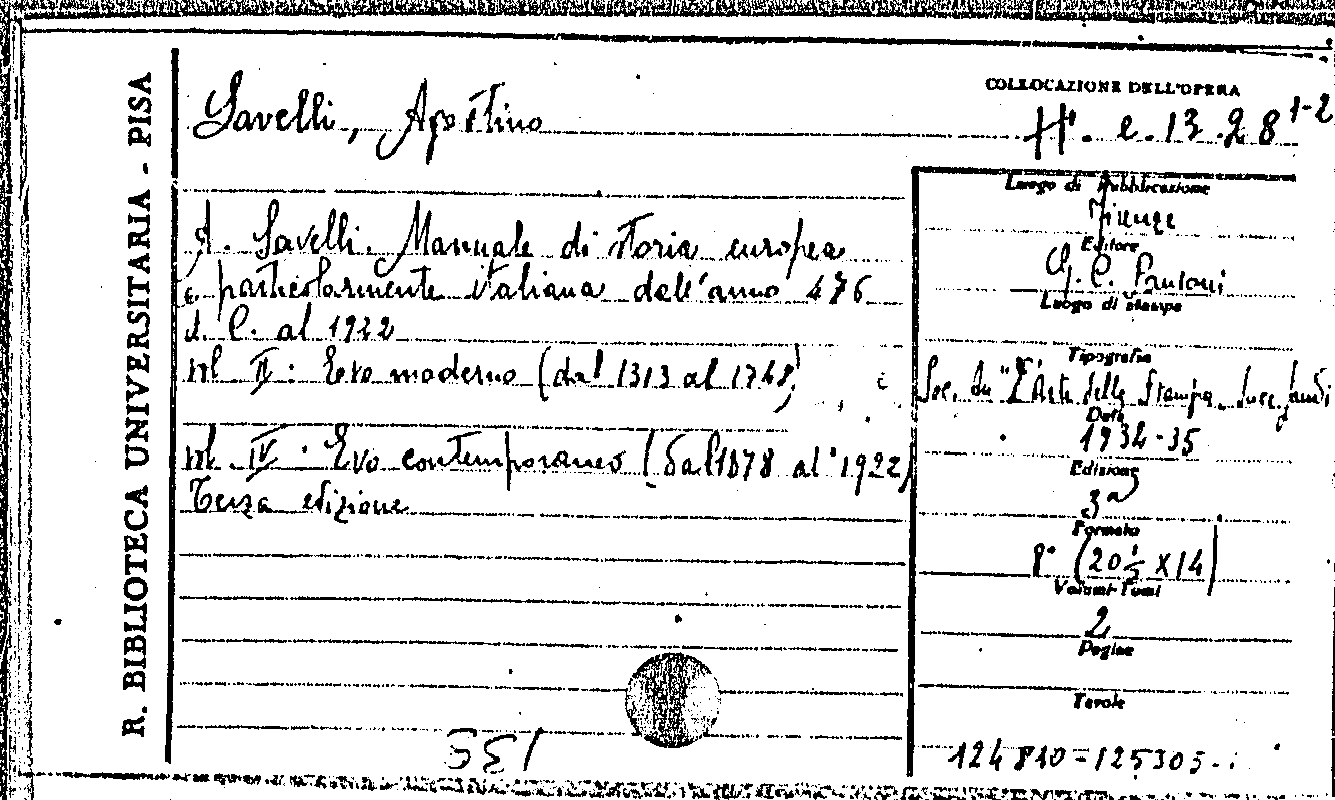 R. BIBLIOTECA UNIVERSITARIA - PISA
Savelli, Agostino
COLLOCAZIONE DELL'OPERA
H. e. 13.28 1-2
A. Savelli. Manuale di storia europea
e particolarmente italiana dall'anno 476
d. C. al 1922
vol. II: Evo moderno (dal 1313 al 1748)
vol. IV: Evo contemporaneo (dal 1878 al 1922)
Terza edizione
Luogo di Pubblicazione
Firenze
Editore
G. C. Sansoni
Luogo di stampa
Tipografia
Soc. An "L'Arte della Stampa
Data
1934-35
Edizione
3ª
Formato
8° (20 ½ X 14)
Volumi-Tomi
2
Pagine
Tavole
124810=125305